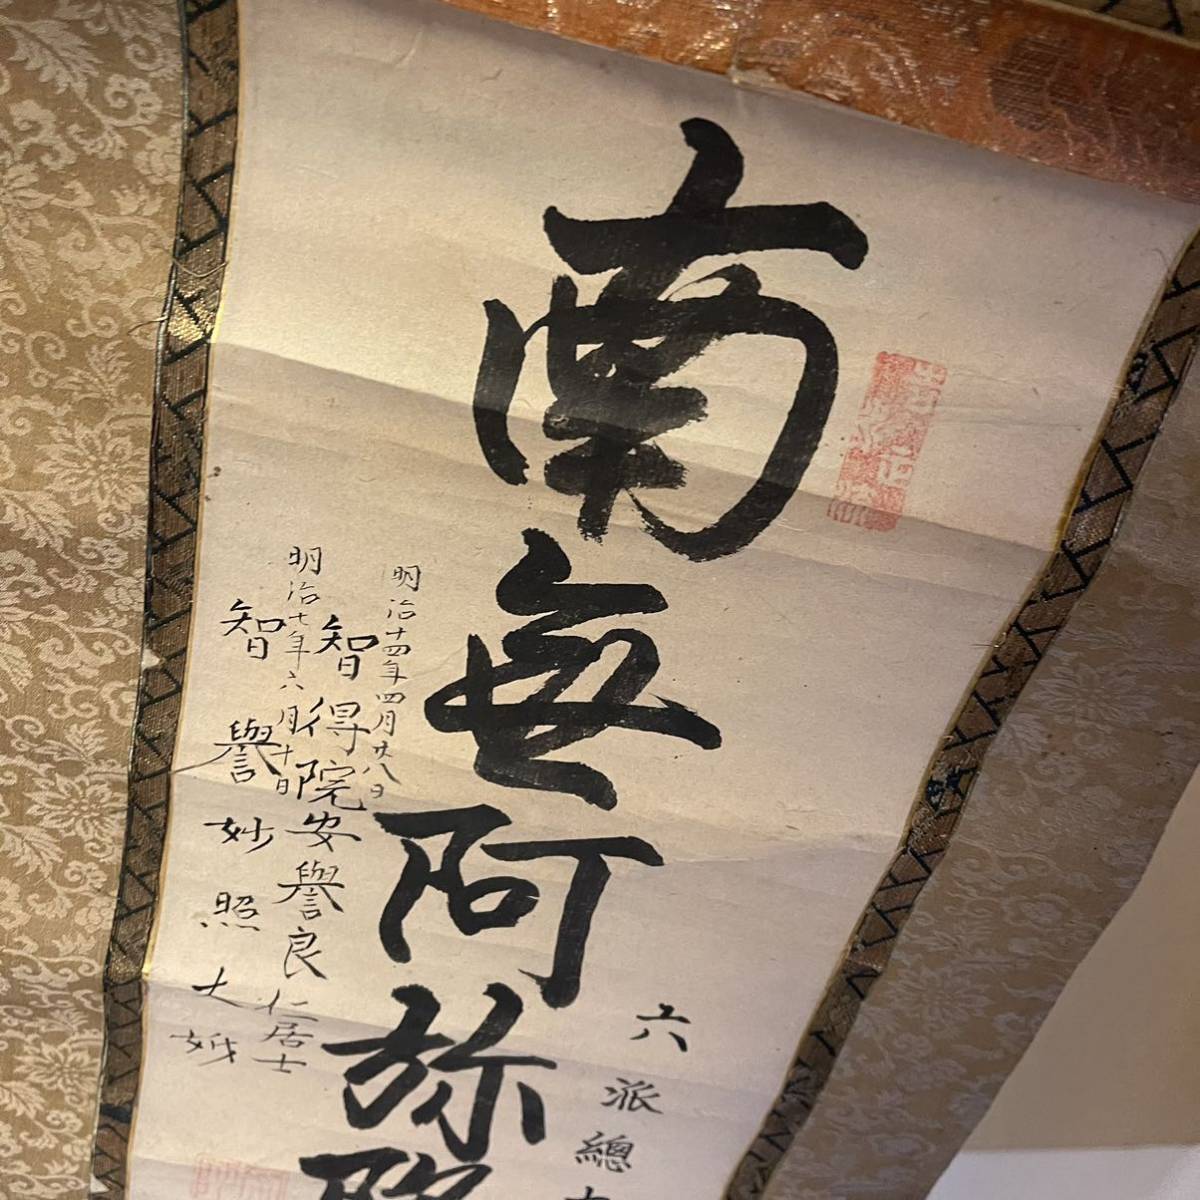 南無阿弥陀
六派總
明治十四年四月廿八日
智得院安譽良仁居士
明治七年六月十日
智譽妙照大姉